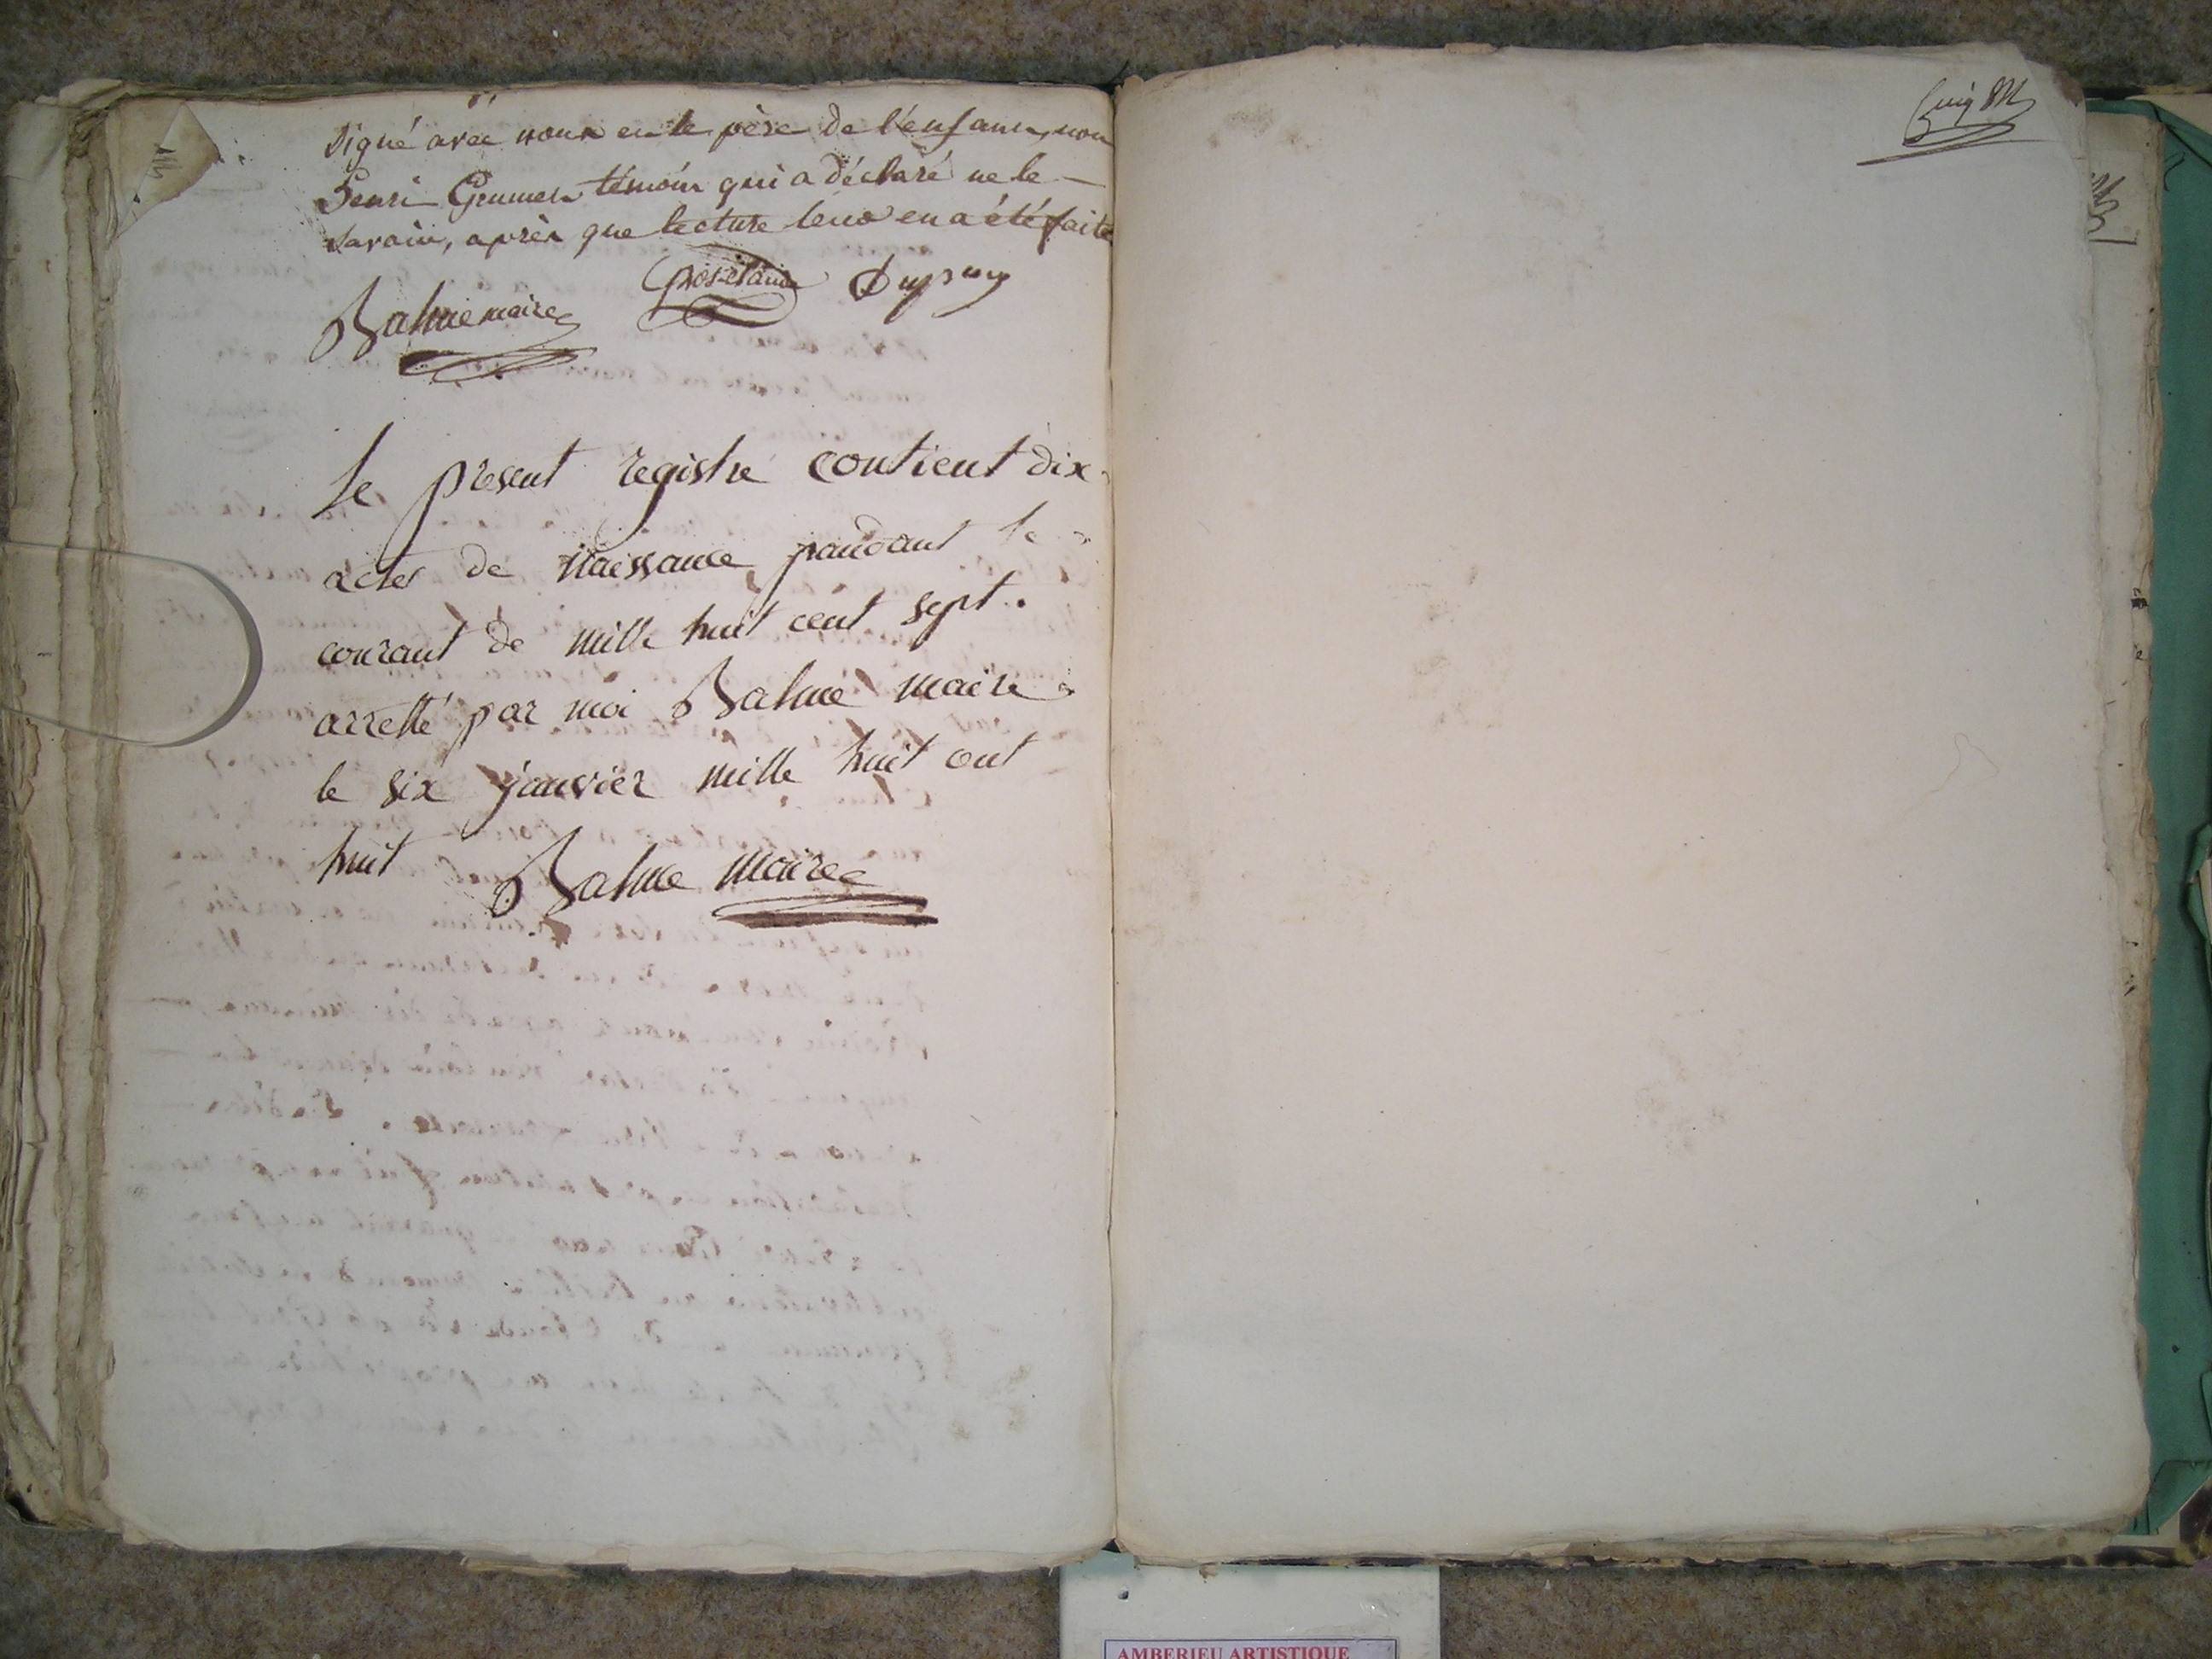 signé avec nous et le père de l'enfant, non
Henri témoin qui a déclaré ne le
savoir, après que lecture leur en a été faite
Balme maire Dupuy
Le present registre contient dix
actes de Naissance pandant le
courant de mille huit cent sept.
arretté par moi Balme maire
le six janvier mille huit cent
huit Balme maire
AMBERIEU ARTISTIQUE